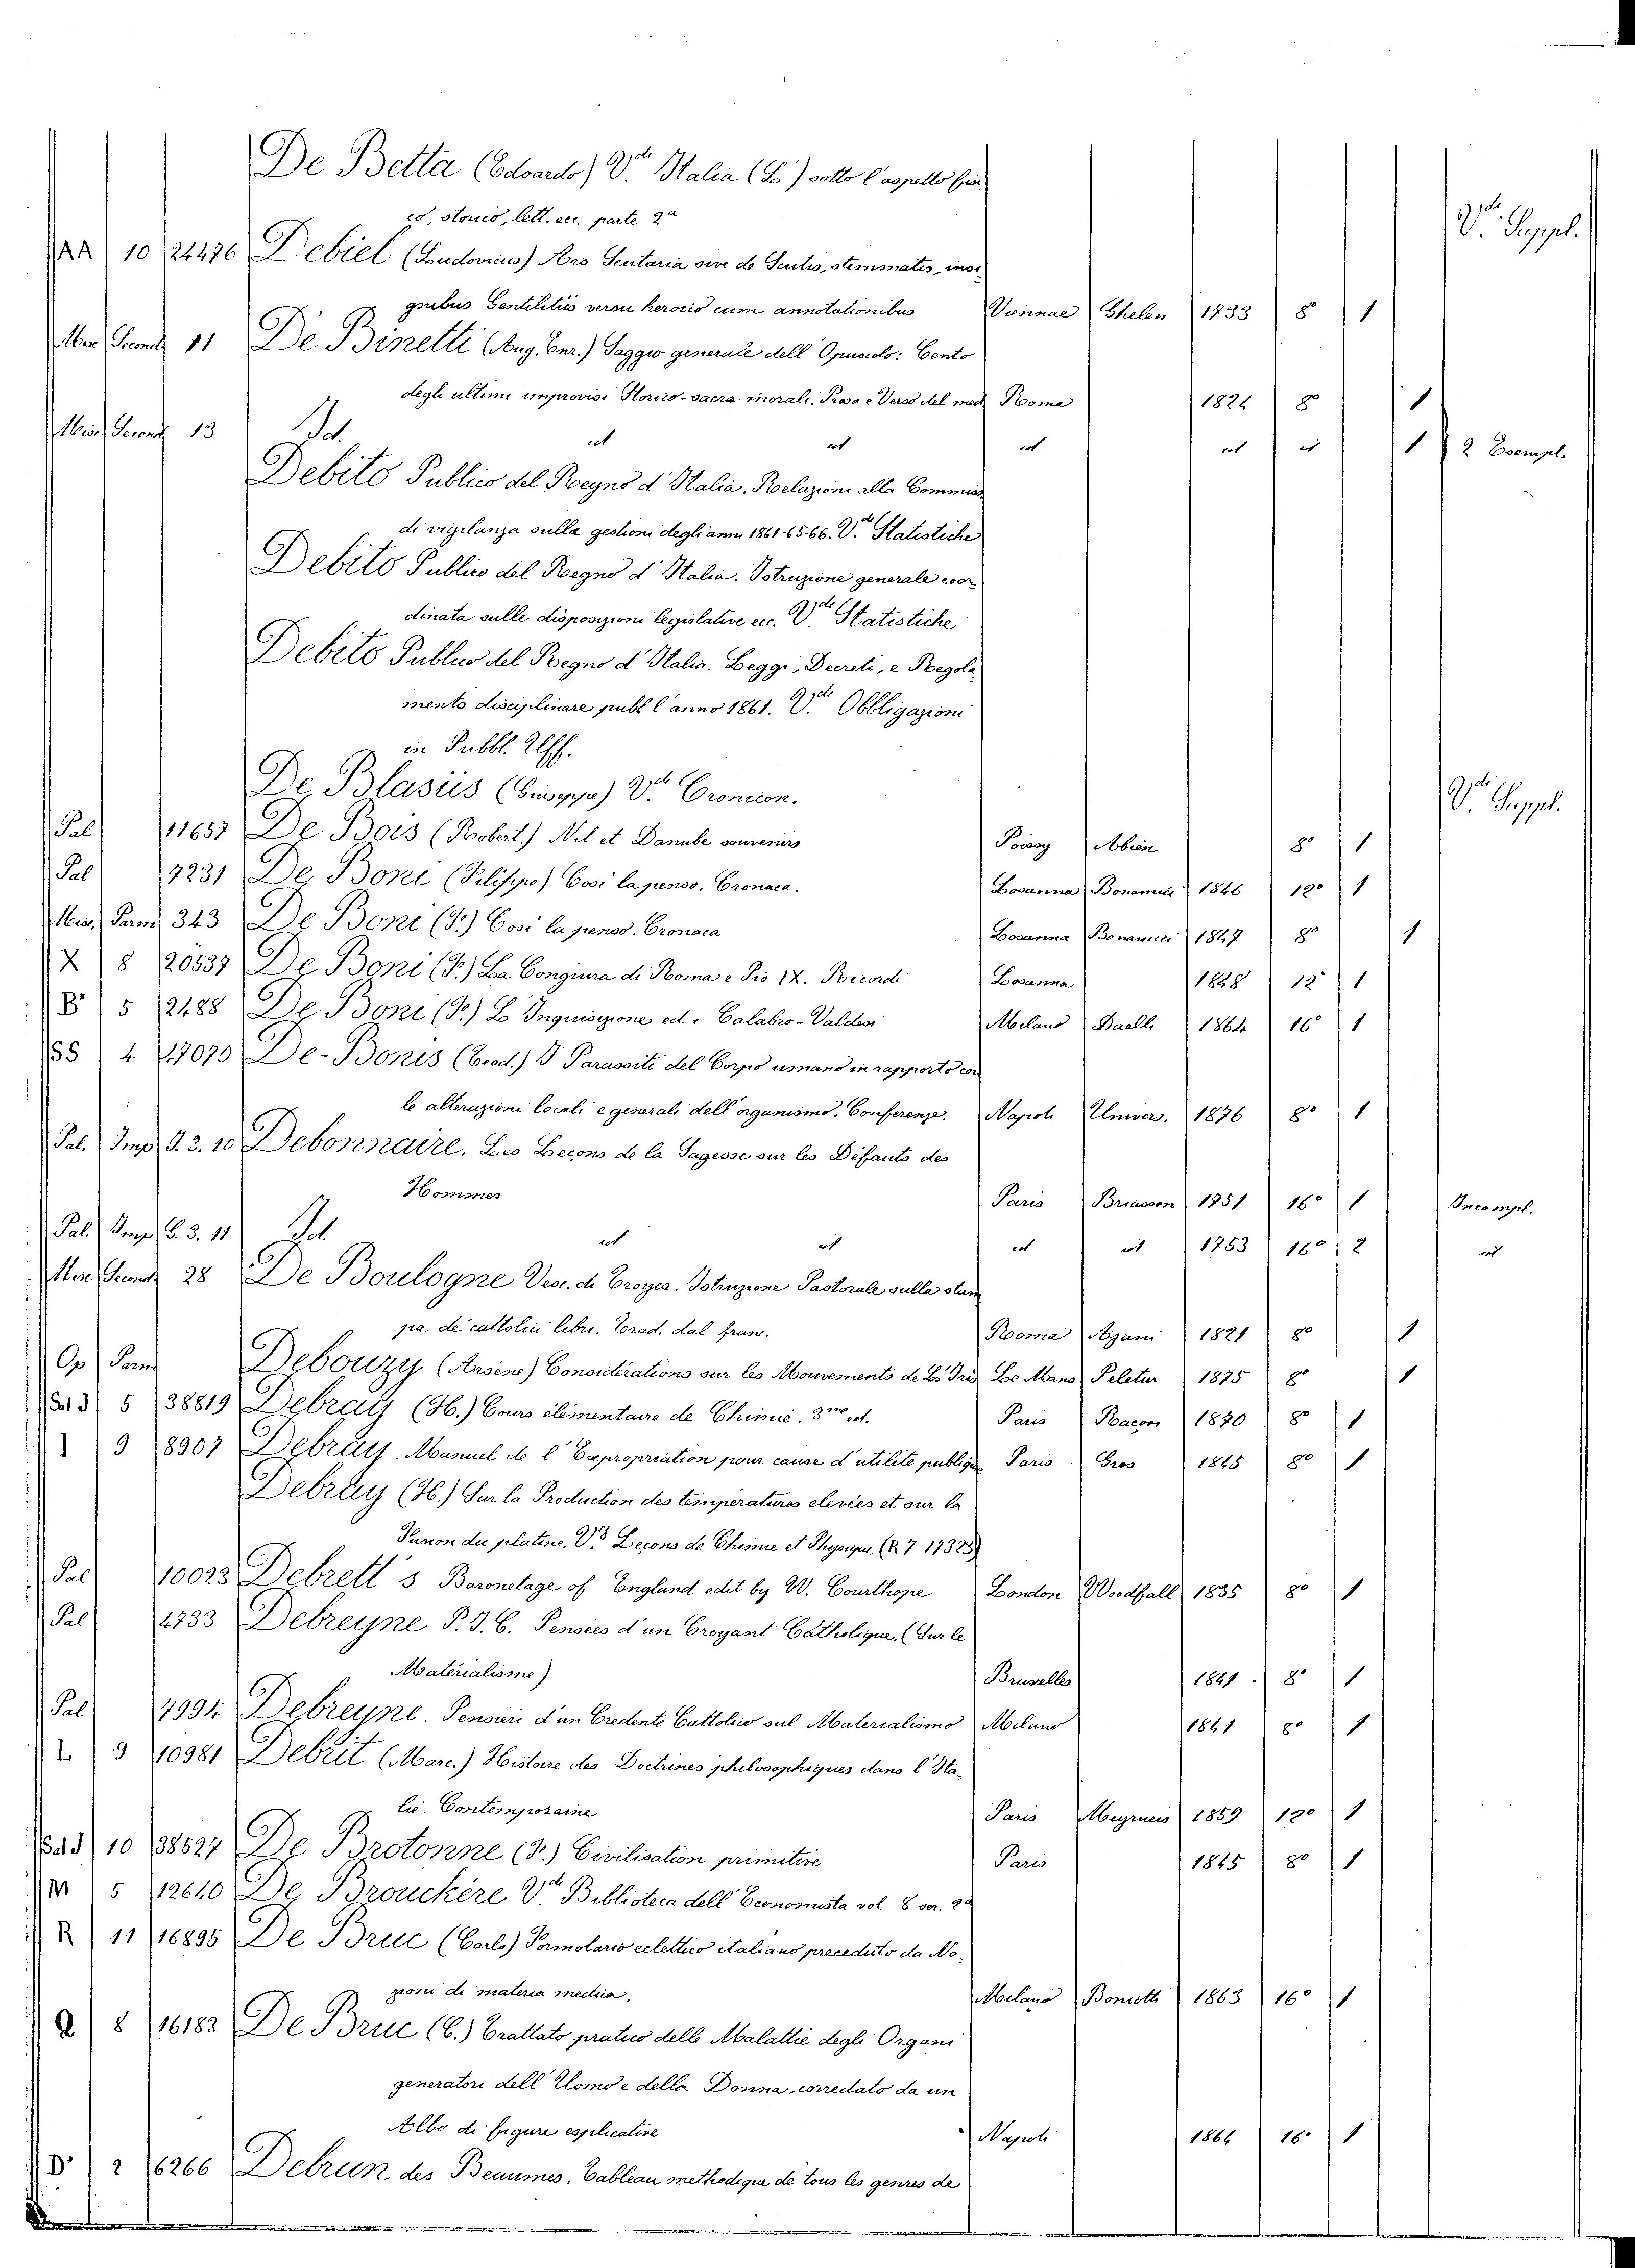 De Betta (Edoardo) V.de Italia (L') sotto l'aspetto fisi
co, storico, lett. ecc. parte 2a
V.de Suppl.
AA 10 24476 Debiel (Ludovicus) Ars Scutaria sive de Scutis, stemmatis, insi
gnibus Gentilitiis versu heroico cum annotationibus Viennae Ghelen 1733 8° 1
Misc. Second 11 De Binetti (Aug. Enr.) Saggio generale dell'Opuscolo: Cento
degli ultimi improvisi Storico-sacra-morali. Prosa e Verso del med Roma 1824 8° 1
Misc. Second 13 Id. id id id id id 1 2 Esempl.
Debito Publico del Regno d'Italia. Relazioni alla Commiss
di vigilanza sulla gestioni degli anni 1861-65-66. V.de Statistiche
Debito Publico del Regno d'Italia. Istruzione generale coor
dinata sulle disposizioni legislative ecc. V.de Statistiche
Debito Publico del Regno d'Italia. Leggi, Decreti, e Regola
mento disciplinare publ l'anno 1861. V.de Obbligazioni
in Pubbl. Uff.
De Blasiis (Giuseppe) V.de Cronicon. V.de Suppl.
Pal 11657 De Bois (Robert.) Nil et Danube souvenirs Poissy Abien 8° 1
Pal 7231 De Boni (Filippo) Così la penso. Cronaca. Losanna Bonamici 1846 12° 1
Misc. Parm 343 De Boni (F.) Così la penso. Cronaca Losanna Bonamici 1847 8° 1
X 8 20537 De Boni (F.) La Congiura di Roma e Pio IX. Ricordi Losanna 1848 12° 1
B' 5 2488 De Boni (F.) L'Inquisizione ed i Calabro-Valdesi Milano Daelli 1864 16° 1
SS 4 47070 De-Bonis (Teod.) I Parassiti del Corpo umano in rapporto con
le alterazioni locali e generali dell'organismo. Conferenze. Napoli Univers. 1876 8° 1
Pal. Imp G. 3. 10 Debonnaire. Les Lecons de la Sagesse sur les Défauts des
Hommes Paris Briasson 1751 16° 1 Incompl.
Pal. Imp G. 3. 11 Id. id id id id 1753 16° 2 id
Misc. Second 28 De Boulogne Vesc. di Troyes. Istruzione Pastorale sulla stam
pa de' cattolici libri. Trad. dal franc. Roma Ajani 1821 8° 1
Op Parm Debouzy (Arsène) Considérations sur les Mouvements de L'Iris Le Mans Peletier 1875 8° 1
5 38819 Debray (H.) Cours élémentaire de Chimie. 3me ed. Paris Racon 1870 8° 1
I 9 8907 Debray. Manuel de l'Expropriation pour cause d'utilité publique Paris Gros 1845 8° 1
Debray (H.) Sur la Production des températures elevées et sur la
Fusion du platine. V.s Lecons de Chimie et Physique. (R 7 17323)
Pal 10023 Debrett's Baronetage of England edit by W. Courthope London Woodfall 1835 8° 1
Pal 4733 Debreyne P. J. C. Pensées d'un Croyant Catholique. (Sur le
Matérialisme) Bruxelles 1841 8° 1
Pal 7994 Debreyne. Pensieri d'un Credente Cattolico sul Materialismo Milano 1841 8° 1
L 9 10981 Debrit (Marc.) Histoire des Doctrines philosophiques dans l'Ita-
lie Contemporaine Paris Meyrueis 1859 12° 1
10 38527 De Brotonne (F.) Civilisation primitive Paris 1845 8° 1
M 5 12640 De Brouckère V.de Biblioteca dell'Economista vol 8 ser. 2a
R 11 16895 De Bruc (Carlo) Formolario eclettico italiano preceduto da No-
zioni di materia medica. Milano Boniotti 1863 16° 1
Q 8 16183 De Bruc (C.) Trattato pratico delle Malattie degli Organi
generatori dell'Uomo e della Donna, corredato da un
Albo di figure esplicative Napoli 1864 16° 1
D' 2 6266 Debrun des Beaumes. Tableau methodique de tous les genres de